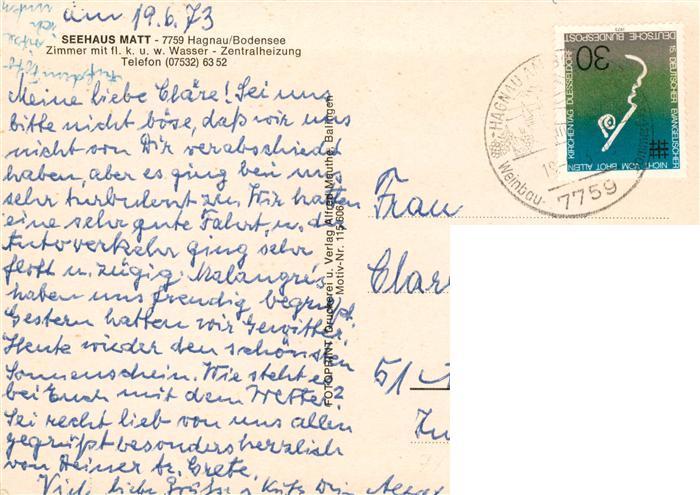 am 19.6.73
SEEHAUS MATT - 7759 Hagnau/Bodensee
Zimmer mit fl. k. u. w. Wasser - Zentralheizung
Telefon (07532) 63 52
Meine liebe Cläre! Sei uns
bitte nicht böse, daß wir uns
nicht von Dir verabschiedet
haben, aber es ging bei uns
sehr turbulent zu. Wir hatten
eine sehr gute Fahrt, u. d.
Autoverkehr ging sehr
flott u. zügig. Malangrés
haben uns freudig begrüßt.
Gestern hatten wir Gewitter.
Heute wieder den schönsten
Sonnenschein. Wie steht es
bei Euch mit dem Wetter?
Sei recht lieb von uns allen
gegrüßt besonders herzlich
von Deiner Grete.
Viele liebe Grüße
FOTOPRINT, Druckerei u. Verlag Alfred Mauthe, Balingen
Motiv-Nr. 115 606
DEUTSCHE BUNDESPOST
30
1973
15. DEUTSCHER EVANGELISCHER
KIRCHENTAG DUESSELDORF
NICHT VOM BROT ALLEIN
HAGNAU AM
Weinbau-
7759
Frau
Clär
51